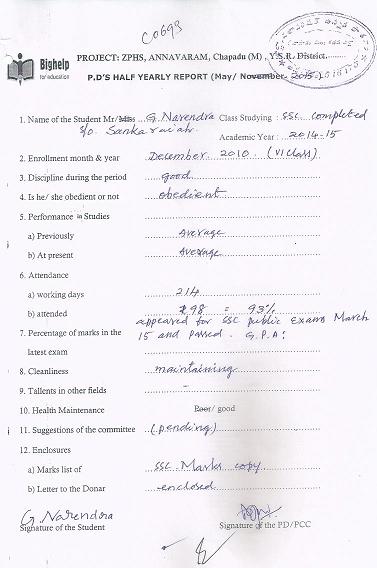 C0693
Bighelp
for education
PROJECT: ZPHS, ANNAVARAM, Chapadu (M), Y.S.R. District.
P.D'S HALF YEARLY REPORT (May/ November 2015)
1. Name of the Student Mr/Miss G. Narendra Class Studying : SSC completed
S/o. Sankaraiah. Academic Year : 2014-15
2. Enrollment month & year December. 2010 (VI class)
3. Discipline during the period good
4. Is he/ she obedient or not obedient
5. Performance in Studies
a) Previously Average
b) At present Average
6. Attendance
a) working days 214
b) attended 198 = 93%
appeared for SSC public Exams March
7. Percentage of marks in the 15 and passed. G.P.A:
latest exam
8. Cleanliness maintaining
9. Tallents in other fields -
10. Health Maintenance Poor/ good
11. Suggestions of the committee (pending)
12. Enclosures
a) Marks list of SSC Marks copy
b) Letter to the Donar enclosed
G. Narendra
Signature of the Student Signature of the PD/PCC